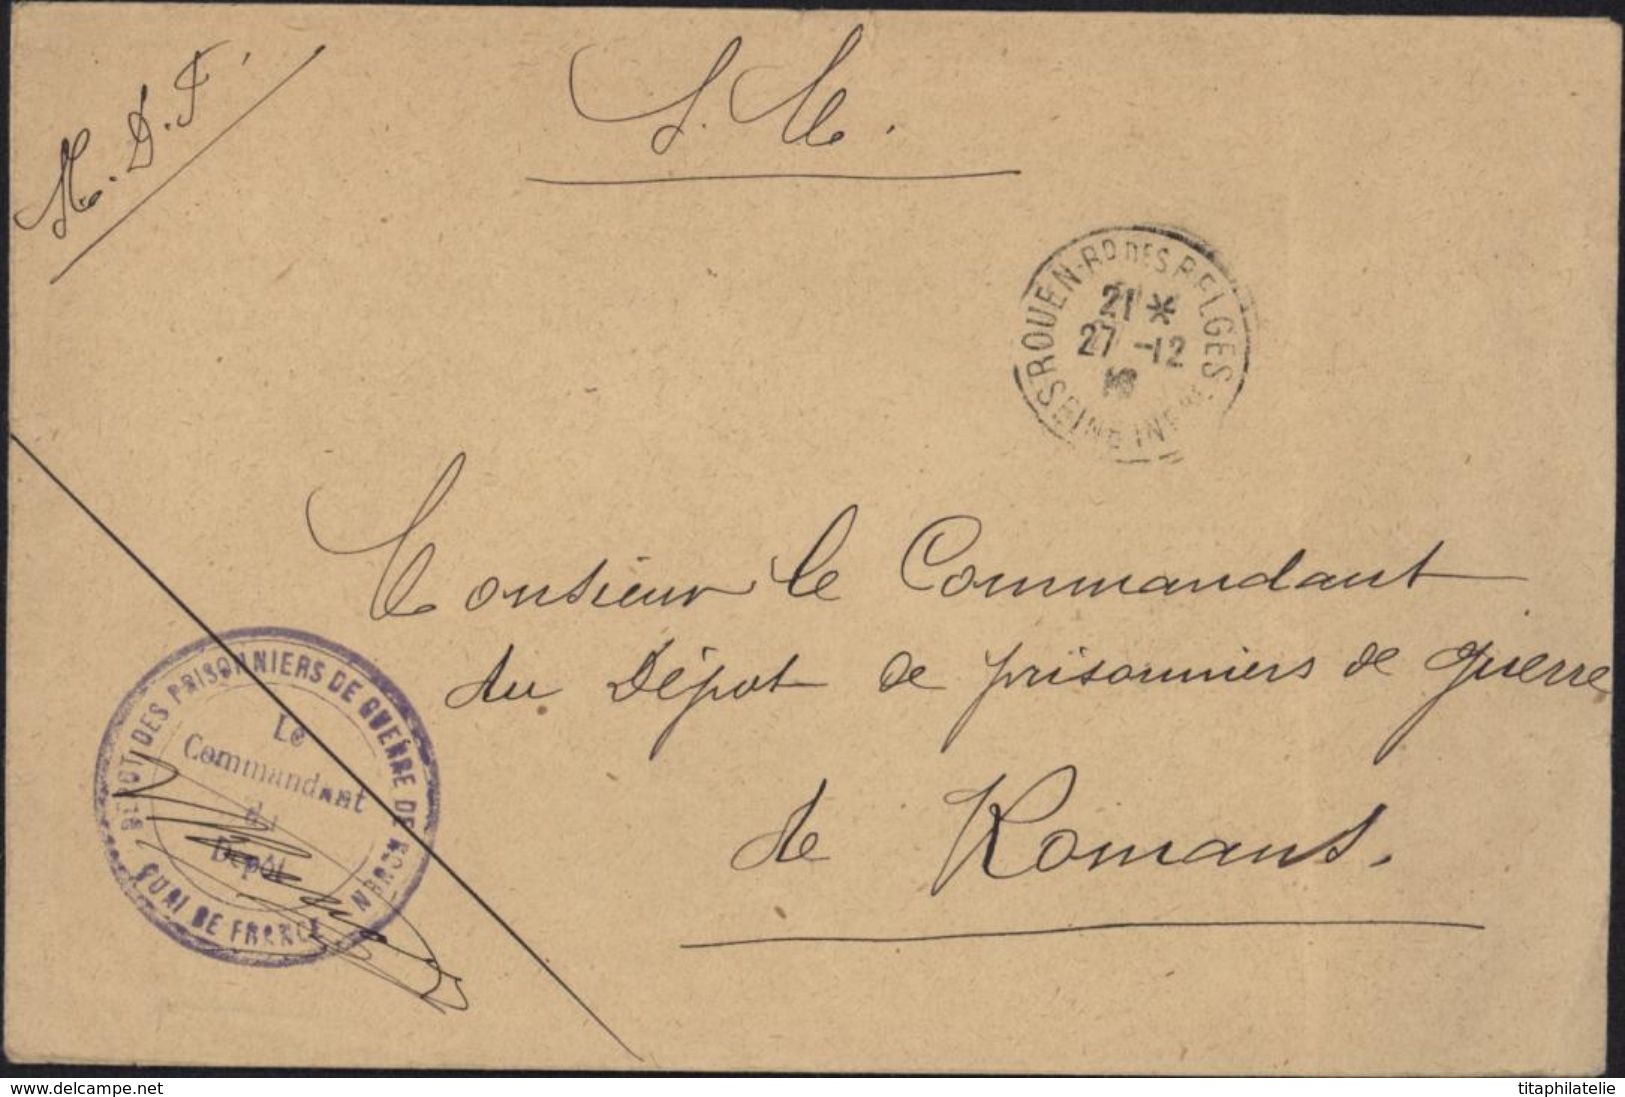 M. D. F.
S. M.
ROUEN-RD DES BELGES
21 *
27 -12
SEINE INFRE
Monsieur le Commandant
du Dépot de prisonniers de guerre
de Romans.
DEPOT DES PRISONNIERS DE GUERRE DE ROUEN
Le
Commandant
du
Dépôt
QUAI DE FRANCE
www.delcampe.net
titaphilatelie